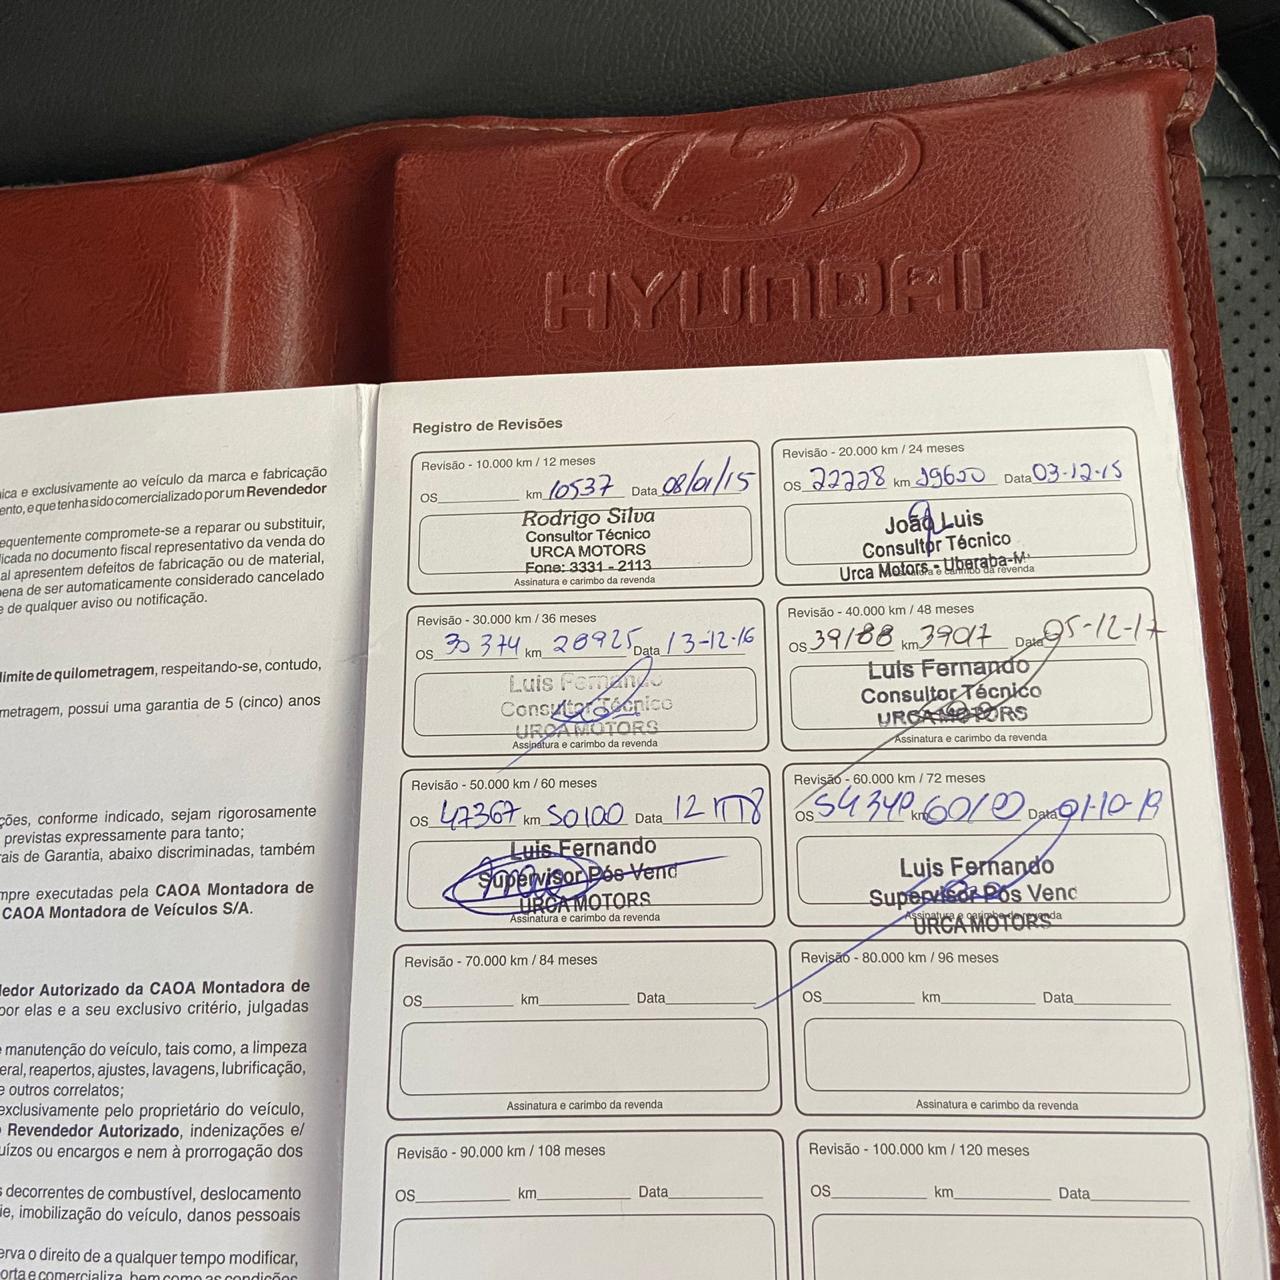 HYUNDAI
ica e exclusivamente ao veículo da marca e fabricação
ento, e que tenha sido comercializado por um Revendedor
equentemente compromete-se a reparar ou substituir,
icada no documento fiscal representativo da venda do
al apresentem defeitos de fabricação ou de material,
pena de ser automaticamente considerado cancelado
e de qualquer aviso ou notificação.
limite de quilometragem, respeitando-se, contudo,
metragem, possui uma garantia de 5 (cinco) anos
ções, conforme indicado, sejam rigorosamente
previstas expressamente para tanto;
rais de Garantia, abaixo discriminadas, também
mpre executadas pela CAOA Montadora de
CAOA Montadora de Veículos S/A.
dedor Autorizado da CAOA Montadora de
por elas e a seu exclusivo critério, julgadas
manutenção do veículo, tais como, a limpeza
eral, reapertos, ajustes, lavagens, lubrificação,
e outros correlatos;
exclusivamente pelo proprietário do veículo,
Revendedor Autorizado, indenizações e/
uízos ou encargos e nem à prorrogação dos
decorrentes de combustível, deslocamento
ie, imobilização do veículo, danos pessoais
erva o direito de a qualquer tempo modificar,
porta e comercializa, bem como as condições
Registro de Revisões
Revisão - 10.000 km / 12 meses
OS km 10537 Data 08/01/15
Rodrigo Silva
Consultor Técnico
URCA MOTORS
Fone: 3331 - 2113
Assinatura e carimbo da revenda
Revisão - 20.000 km / 24 meses
OS 22228 km 19620 Data 03-12-15
João Luis
Consultor Técnico
Urca Motors - Uberaba-M
Assinatura e carimbo da revenda
Revisão - 30.000 km / 36 meses
OS 30374 km 28925 Data 13-12-16
Luis Fernando
Consultor Técnico
URCA MOTORS
Assinatura e carimbo da revenda
Revisão - 40.000 km / 48 meses
OS 39188 km 39017 Data 05-12-17
Luis Fernando
Consultor Técnico
URCA MOTORS
Assinatura e carimbo da revenda
Revisão - 50.000 km / 60 meses
OS 47367 km 50100 Data 12
Luis Fernando
Supervisor Pós Vend
URCA MOTORS
Assinatura e carimbo da revenda
Revisão - 60.000 km / 72 meses
OS 54340 km 60100 Data 01-10-19
Luis Fernando
Supervisor Pós Venc
Assinatura e carimbo da revenda
URCA MOTORS
Revisão - 70.000 km / 84 meses
OS km Data
Assinatura e carimbo da revenda
Revisão - 80.000 km / 96 meses
OS km Data
Assinatura e carimbo da revenda
Revisão - 90.000 km / 108 meses
OS km Data
Revisão - 100.000 km / 120 meses
OS km Data